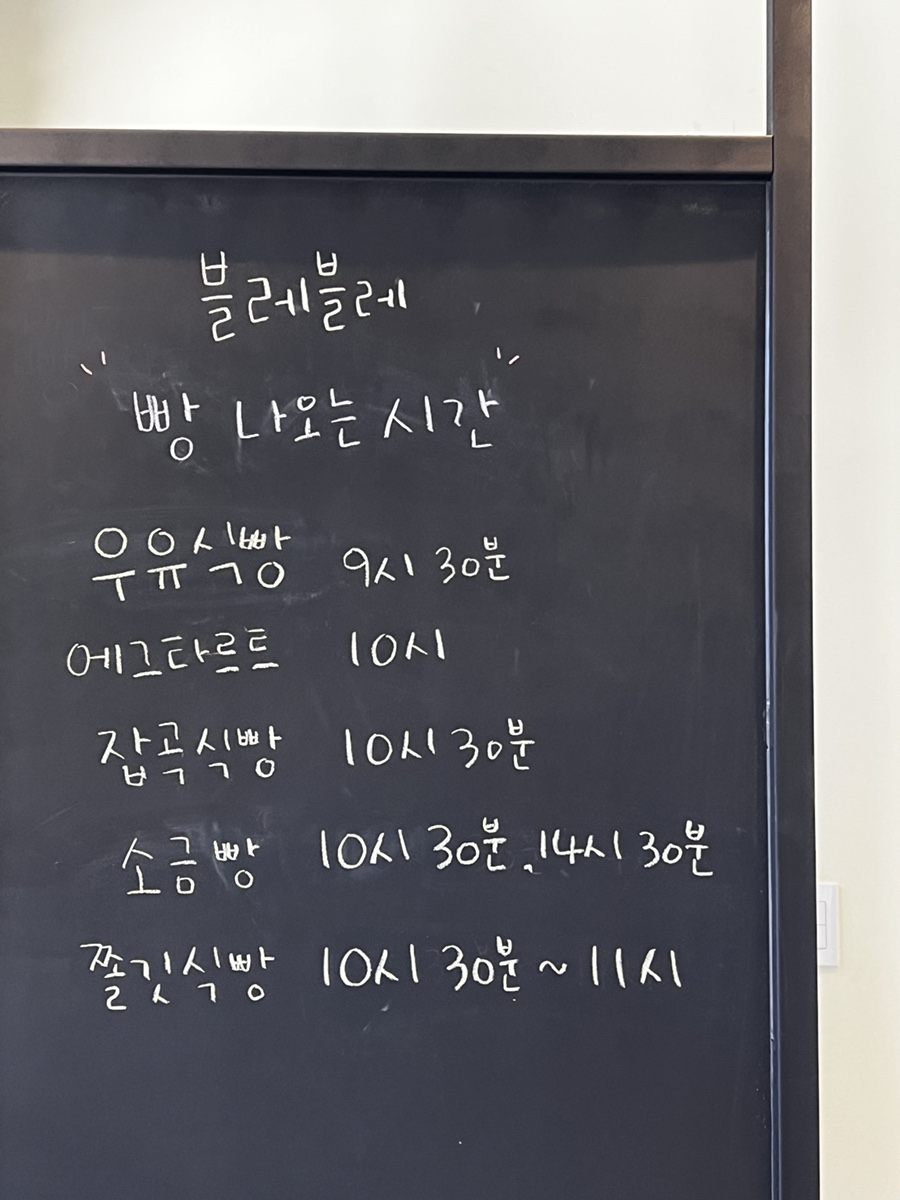 블레블레
" 빵 나오는 시간 "
우유식빵 9시 30분
에그타르트 10시
잡곡식빵 10시 30분
소금빵 10시 30분, 14시 30분
쫄깃식빵 10시 30분 ~ 11시